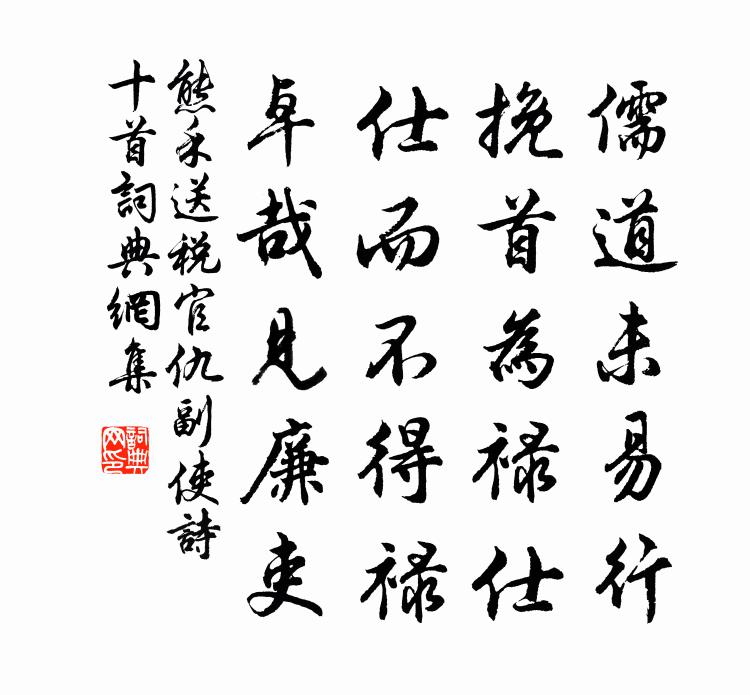 儒道未易行
挽首為禄仕
仕而不得禄
卓哉見廉吏
熊禾送税官仇副使詩
十首詞典網集
詞典
网印